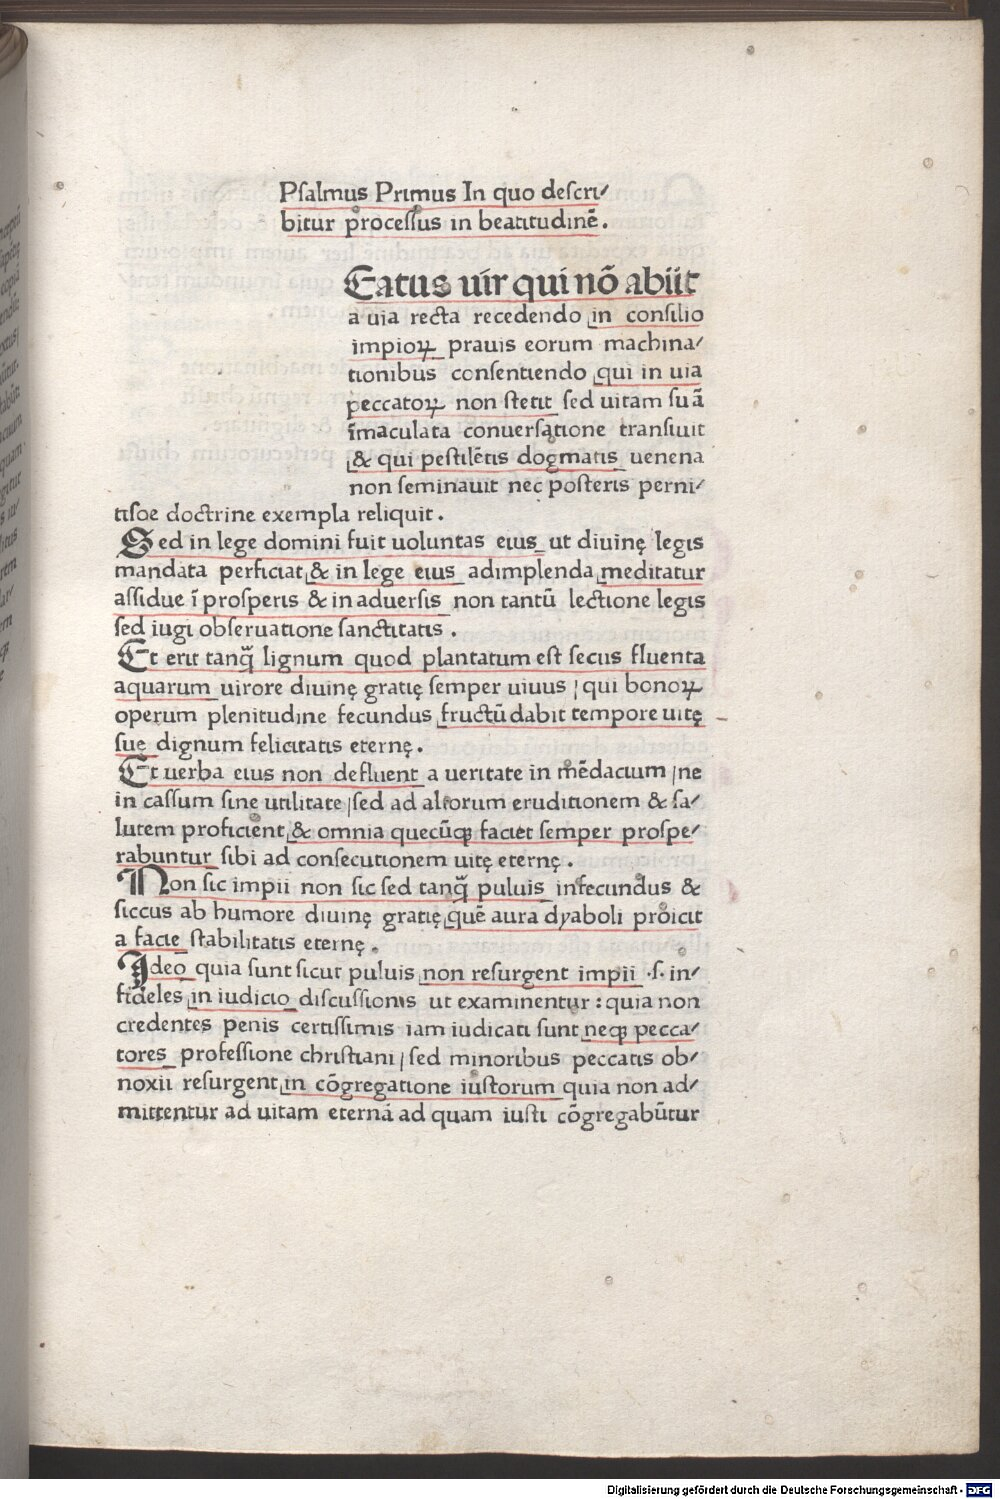 Pſalmus Primus In quo deſcri⸗
bitur proceſſus in beatitudinē.
Eatus uir qui nō abiit
a uia recta recedendo in conſilio
impioꝝ prauis eorum machina⸗
tionibus conſentiendo qui in uia
peccatoꝝ non ſtetit ſed uitam ſuā
īmaculata conuerſatione tranſiuit
& qui peſtilētis dogmatis uenena
non ſeminauit nec poſteris perni⸗
tiſoe doctrine exempla reliquit.
Sed in lege domini fuit uoluntas eius ut diuinę legis
mandata perficiat & in lege eius adimplenda meditatur
aſſidue ī proſperis & in aduerſis non tantū lectione legis
ſed iugi obſeruatione ſanctitatis.
Et erit tanq̄ lignum quod plantatum eſt ſecus fluenta
aquarum uirore diuinę gratię ſemper uiuus / qui bonoꝝ
operum plenitudine fecundus fructū dabit tempore uitę
ſuę dignum felicitatis eternę.
Et uerba eius non defluent a ueritate in mēdacium / ne
in caſſum ſine utilitate / ſed ad aliorum eruditionem & ſa⸗
lutem proficient & omnia quecūqꝫ faciet ſemper proſpe⸗
rabuntur ſibi ad conſecutionem uitę eternę.
Non ſic impii non ſic ſed tanq̄ puluis infecundus &
ſiccus ab humore diuinę gratię quē aura dyaboli proicit
a facie ſtabilitatis eternę.
Ideo quia ſunt ſicut puluis non reſurgent impii .ſ. in⸗
fideles in iudicio diſcuſſionis ut examinentur : quia non
credentes penis certiſſimis iam iudicati ſunt neqꝫ pecca⸗
tores profeſſione chriſtiani / ſed minoribus peccatis ob⸗
noxii reſurgent in cōgregatione iuſtorum quia non ad⸗
mittentur ad uitam eternā ad quam iuſti cōgregabūtur
Digitalisierung gefördert durch die Deutsche Forschungsgemeinschaft - DFG